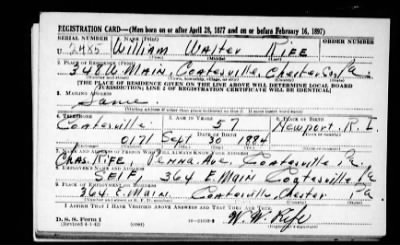 REGISTRATION CARD—(Men born on or after April 28, 1877 and on or before February 16, 1897)
SERIAL NUMBER 1. NAME (Print) ORDER NUMBER
U 2485 William Walter Rife
2. PLACE OF RESIDENCE (Print)
348 W. Main, Coatesville, Chester Co. Pa
[THE PLACE OF RESIDENCE GIVEN ON THE LINE ABOVE WILL DETERMINE LOCAL BOARD
JURISDICTION; LINE 2 OF REGISTRATION CERTIFICATE WILL BE IDENTICAL]
3. MAILING ADDRESS
Same
4. TELEPHONE 5. AGE IN YEARS 6. PLACE OF BIRTH
Coatesville 57 Newport, R. I.
DATE OF BIRTH
0171 Sept 30 1884
Chas. Rife, Penna. Ave. Coatesville, Pa.
8. EMPLOYER'S NAME AND ADDRESS
Self, 364 E. Main Coatesville Pa
9. PLACE OF EMPLOYMENT OR BUSINESS
364 E. Main Coatesville, Chester Pa
I AFFIRM THAT I HAVE VERIFIED ABOVE ANSWERS AND THAT THEY ARE TRUE.
D. S. S. Form 1
(Revised 4-1-42) (over)
W. W. Rife